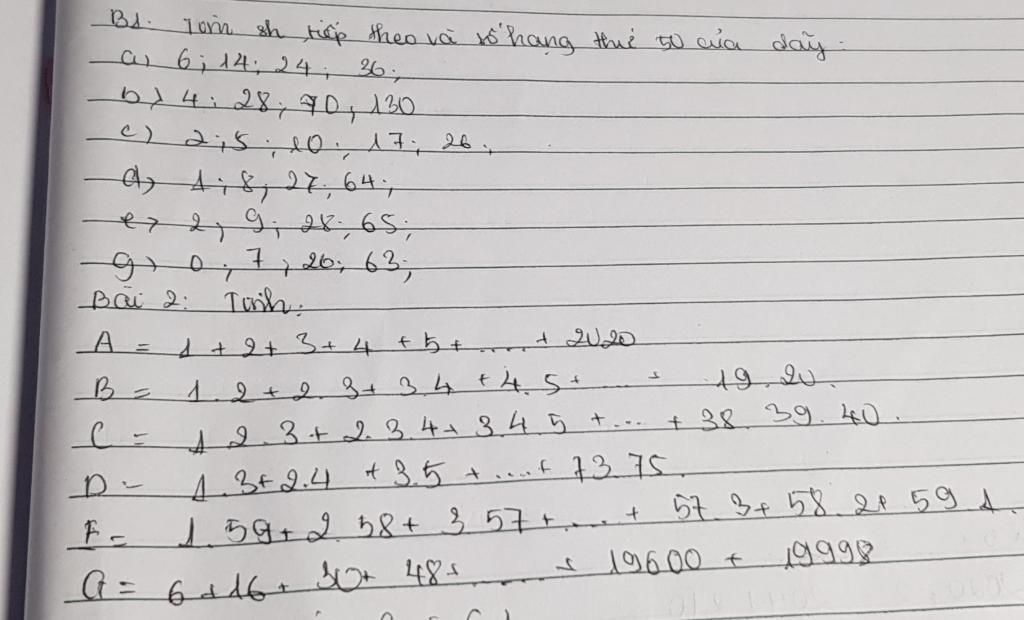 B1. Tìm sh tiếp theo và số hạng thứ 50 của dãy:
a) 6; 14; 24; 36;
b) 4; 28; 70; 130
c) 2; 5; 10; 17; 26;
d) 1; 8; 27; 64;
e) 2; 9; 28; 65;
g) 0; 7; 26; 63;
Bài 2: Tính:
A = 1 + 2 + 3 + 4 + 5 + ..... + 2020
B = 1.2 + 2.3 + 3.4 + 4.5 + ..... + 19.20.
C = 1.2.3 + 2.3.4 + 3.4.5 + ... + 38.39.40.
D = 1.3 + 2.4 + 3.5 + ..... + 73.75.
F = 1.59 + 2.58 + 3.57 + ..... + 57.3 + 58.2 + 59.1
G = 6 + 16 + 30 + 48 + ....... + 19600 + 19998